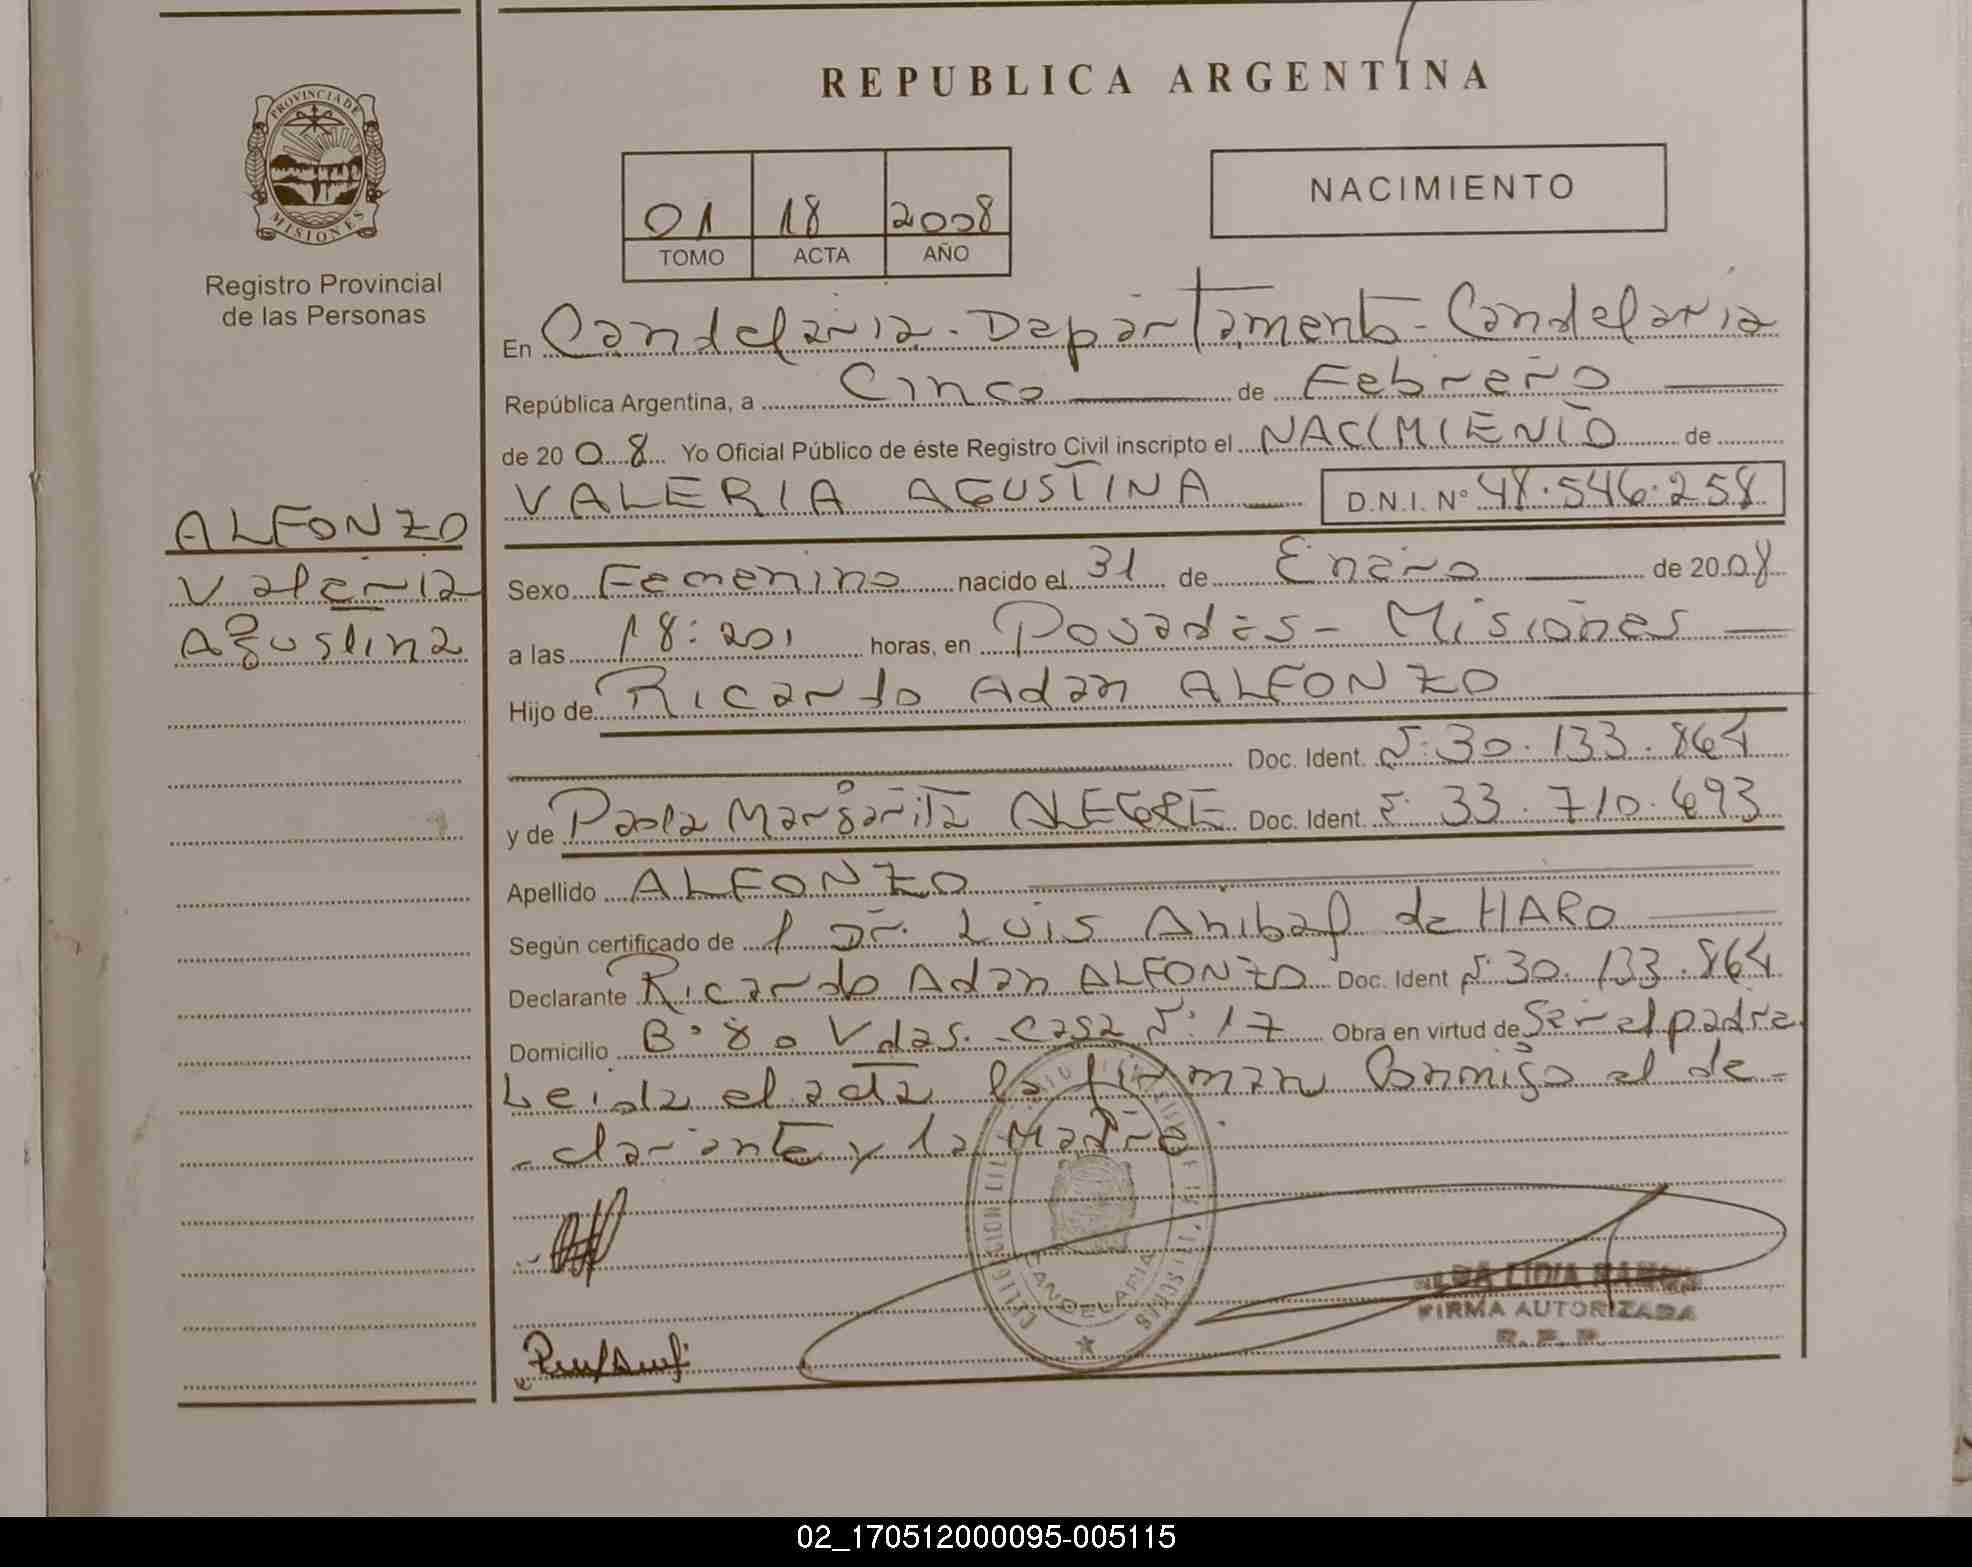 REPUBLICA ARGENTINA
PROVINCIA DE
MISIONES
Registro Provincial
de las Personas
01 18 2008
TOMO ACTA AÑO
NACIMIENTO
ALFONZO
Valeria
Agustina
En Candelaria - Departamento - Candelaria
República Argentina, a Cinco de Febrero
de 2008 Yo Oficial Público de éste Registro Civil inscripto el NACIMIENTO de
VALERIA AGUSTINA D.N.I. Nº 48.546.258
Sexo Femenino nacido el 31 de Enero de 2008
a las 18:20, horas, en Posadas - Misiones
Hijo de Ricardo Adan ALFONZO
Doc. Ident. Nº 30.133.864
y de Paola Margarita ALEGRE Doc. Ident. Nº 33.710.693
Apellido ALFONZO
Según certificado de / Dr. Luis Anibal de HARO
Declarante Ricardo Adan ALFONZO Doc. Ident Nº 30.133.864
Domicilio Bº 80 Vdas. - Casa Nº 17 Obra en virtud de Ser el padre.
Leida el acta la firman Conmigo el de-
-clarante y la Madre.
CANDELARIA
ALBA LIDIA RAMOS
FIRMA AUTORIZADA
R. P. P.
02_170512000095-005115